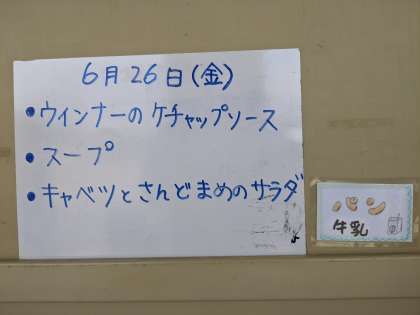 6月26日(金)
•ウインナーのケチャップソース
•スープ
•キャベツとさんどまめのサラダ
パン
牛乳